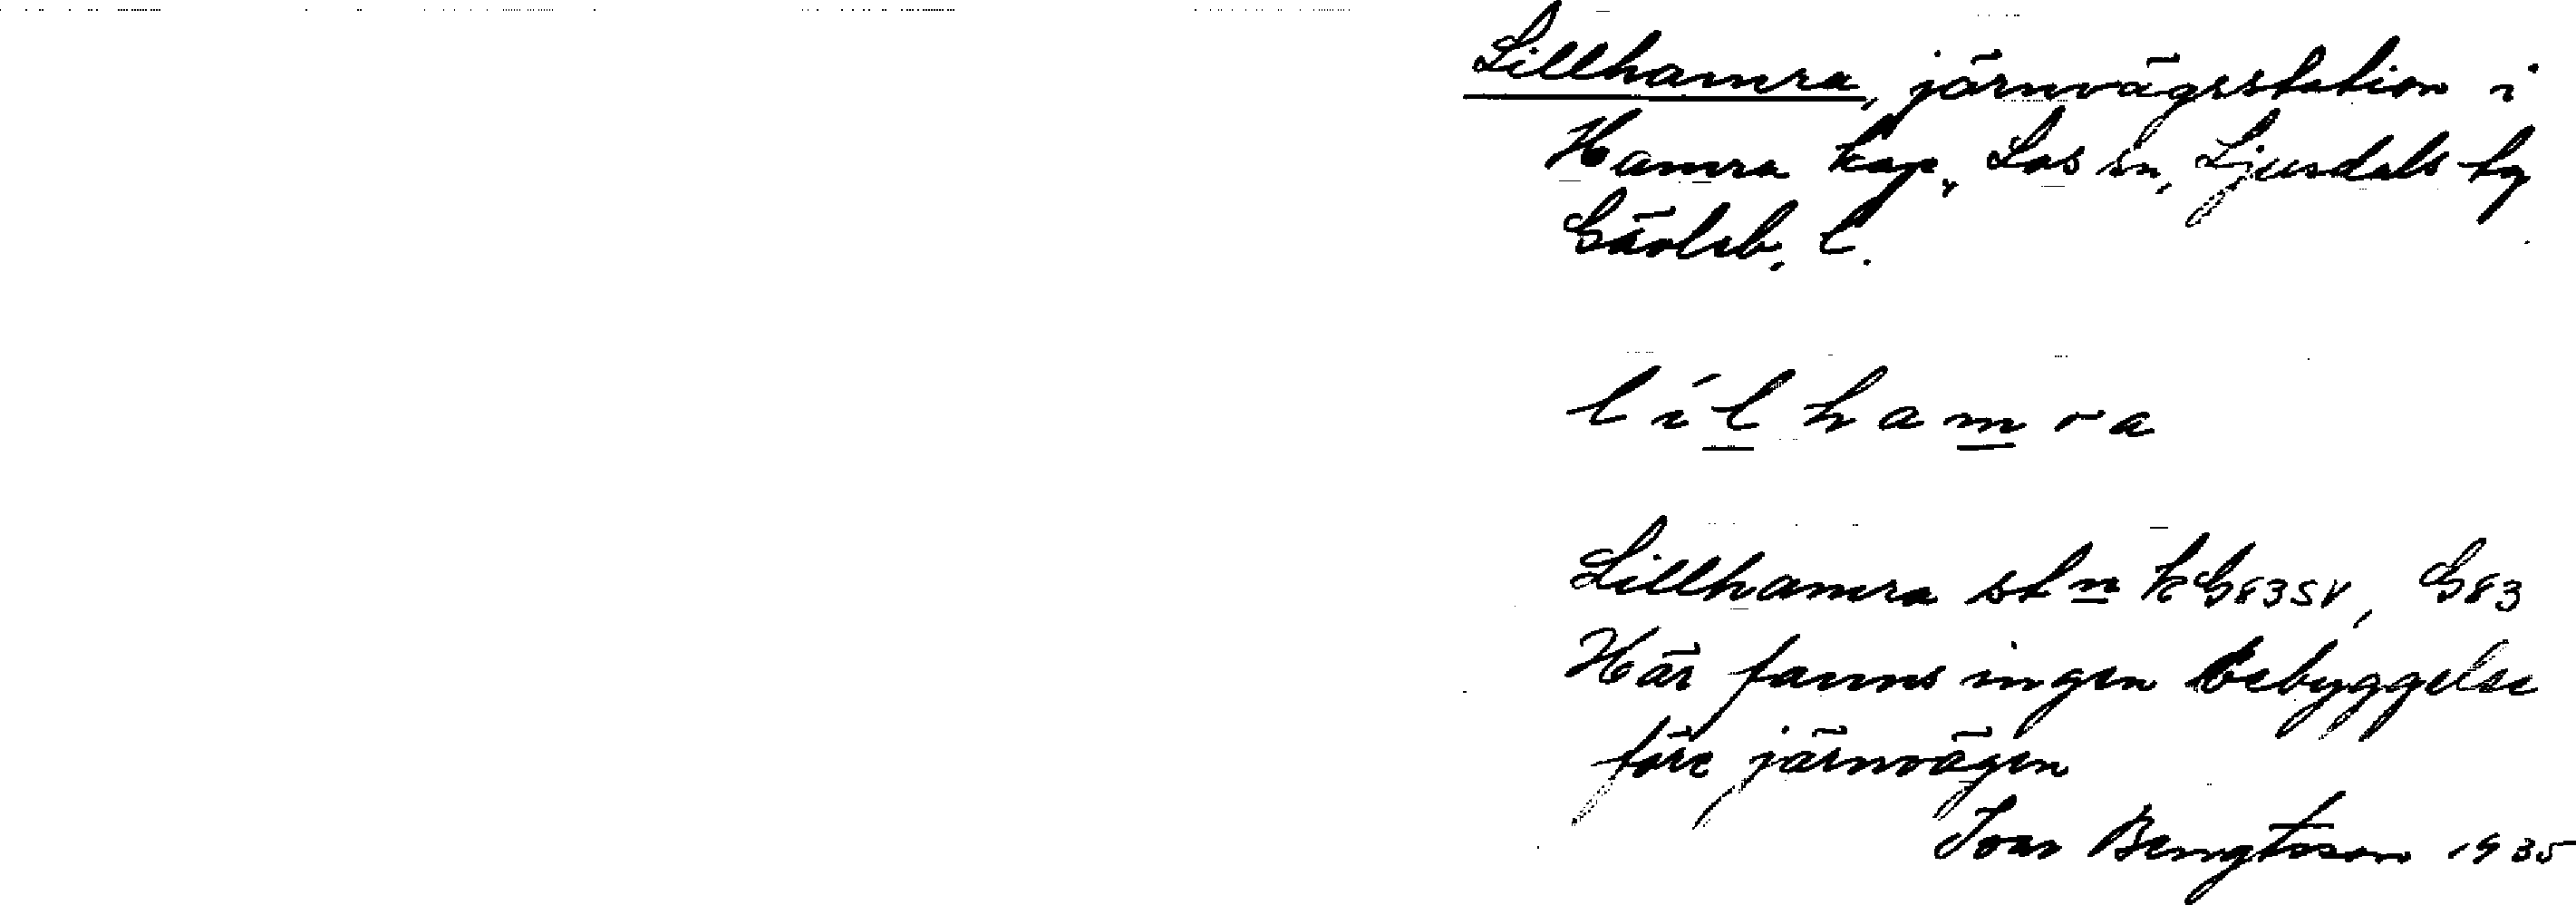 Lillhamra, järnvägsstation i
Hamra kap., Los sn, Ljusdals tg
Gävleb. l.
lílhamra
Lillhamra st n kG83SV, G83
Här fanns ingen bebyggelse
före järnvägen
Ivar Bengtsson 1935